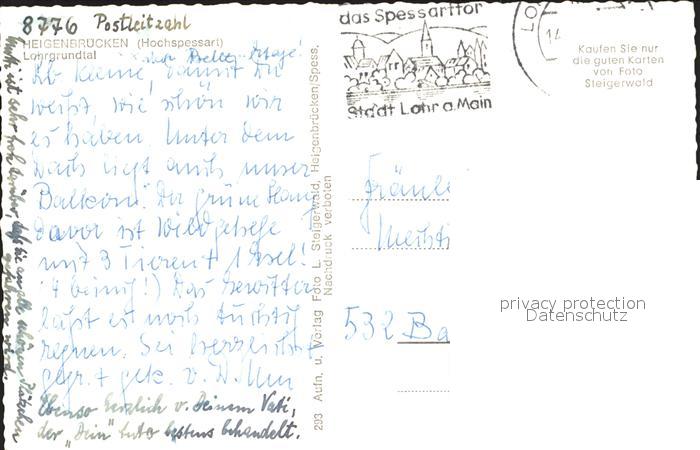 8776 Postleitzahl
HEIGENBRÜCKEN (Hochspessart)
Lohrgrundtal
Karte, damit Du
weißt, wie schön wir
es haben. Unter dem
Dach liegt auch unser
Balkon. Der grüne Hang
davor ist Wildgehege
mit 3 Tieren + 1 Esel!
(4 beinig!) Das Gewitter
läßt es noch tüchtig
regnen. Sei herzlichst
gegr. + gek. v. D.
Ebenso herzlich v. Deinem Vati,
der "Dein" Auto bestens behandelt.
293 Aufn. u. Verlag Foto L. Steigerwald, Heigenbrücken/Spess.
Nachdruck verboten
das Spessarttor
Stadt Lohr a. Main
LO
Kaufen Sie nur
die guten Karten
von Foto
Steigerwald
Fräule
532 Ba
privacy protection
Datenschutz